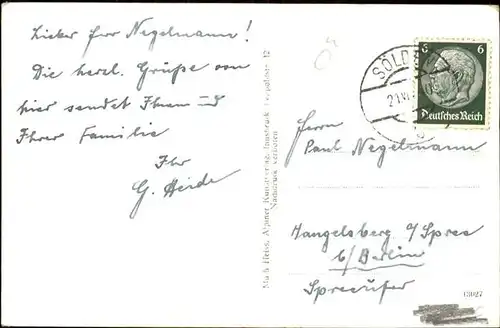 Lieber Herr Negelmann!
Die herzl. Grüße von
hier sendet Ihnen und
Ihrer Familie
Ihr
G. Heide
Much Heiss, Alpiner Kunstverlag, Innsbruck
Nachdruck verboten
SÖLD
6 6
Deutsches Reich
Herrn
Paul Negelmann
Hangelsberg a/Spree
b/Berlin
Spreeufer
13027